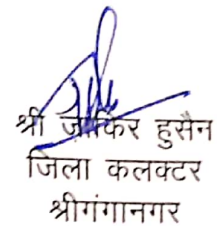 श्री ज़ाकिर हुसैन
जिला कलक्टर
श्रीगंगानगर